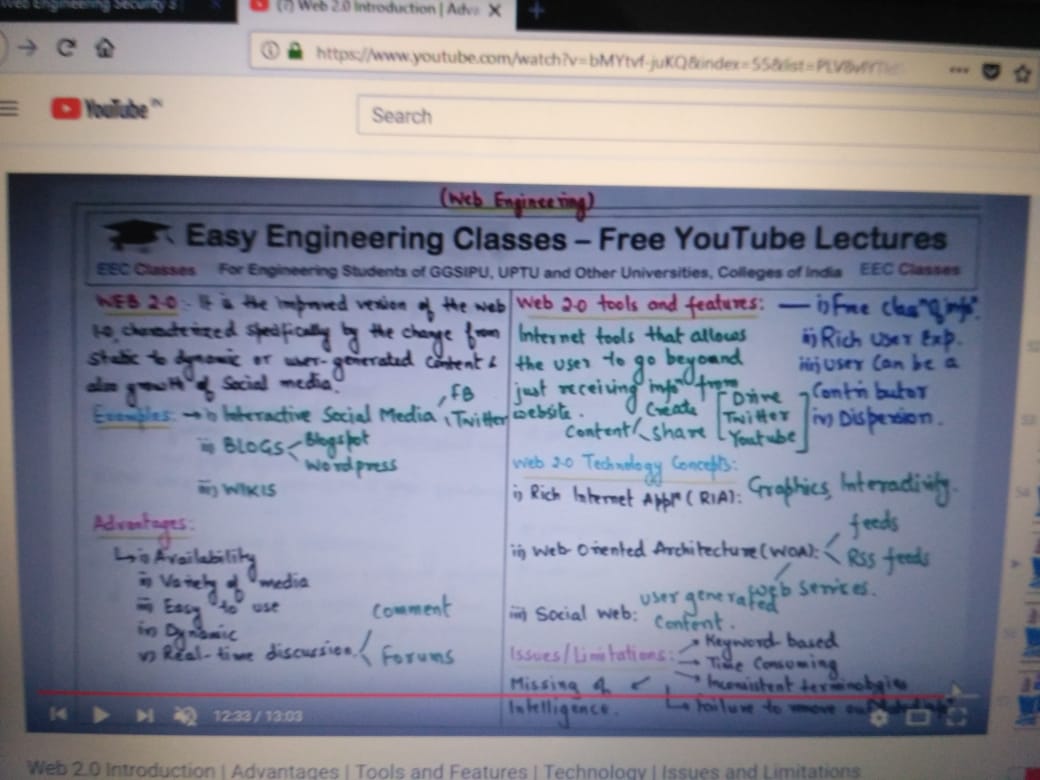 Web Engineering Security
(7) Web 2.0 Introduction | Adva
https://www.youtube.com/watch?v=bMYtvf-juKQ&index=55&list=PLV8vIY
YouTube IN
Search
(Web Engineering)
Easy Engineering Classes – Free YouTube Lectures
EEC Classes For Engineering Students of GGSIPU, UPTU and Other Universities, Colleges of India EEC Classes
WEB 2.0:- It is the improved version of the web
1.0, characterized specifically by the change from
static to dynamic or user-generated content &
also growth of Social media.
Examples: → i) Interactive Social Media FB
Twitter
ii) BLOGS Blogspot
Wordpress
iii) WIKIS
Advantages:
i) Availability
ii) Variety of media
iii) Easy to use
iv) Dynamic
v) Real-time discussion. comment
Forums
Web 2.0 tools and features: — i) Free clasⁿ of infⁿ.
Internet tools that allows ii) Rich User Exp.
the user to go beyound iii) User can be a
just receiving infⁿ from Contributor
website. iv) Dispersion.
Content Create
Share
Drive
Twitter
Youtube
Web 2.0 Technology Concepts:
i) Rich Internet Applⁿ (RIA): Graphics, Interactivity.
ii) Web Oriented Architecture (WOA): feeds
RSS feeds
web services.
iii) Social Web: user generated
Content.
Issues/Limitations: → Keyword based
→ Time Consuming
→ Inconsistent terminologies
Missing of
Intelligence.
Failure to move
12:33 / 13:03
Web 2.0 Introduction | Advantages | Tools and Features | Technology | Issues and Limitations